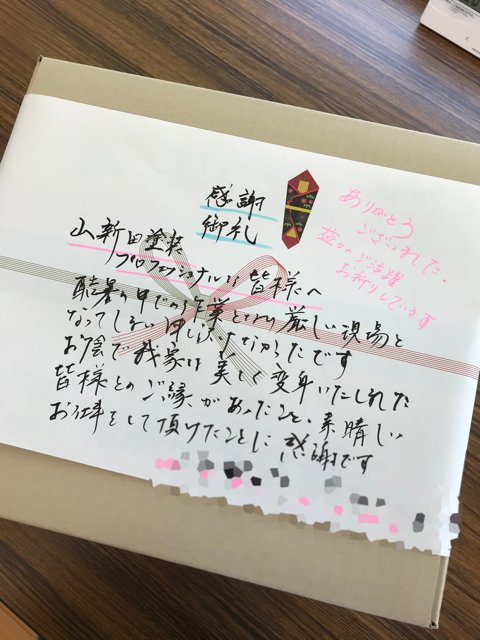 感謝
御礼
ありがとう
ございました。
益々のご活躍
お祈りしています
山新田塗装
プロフェッショナルな 皆様へ
酷暑の中での作業となり 厳しい現場と
なってしまい申し訳なかったです
お陰で我家は美しく変身いたしました
皆様とのご縁があったこと、素晴しい
お仕事をして頂けたことに 感謝です